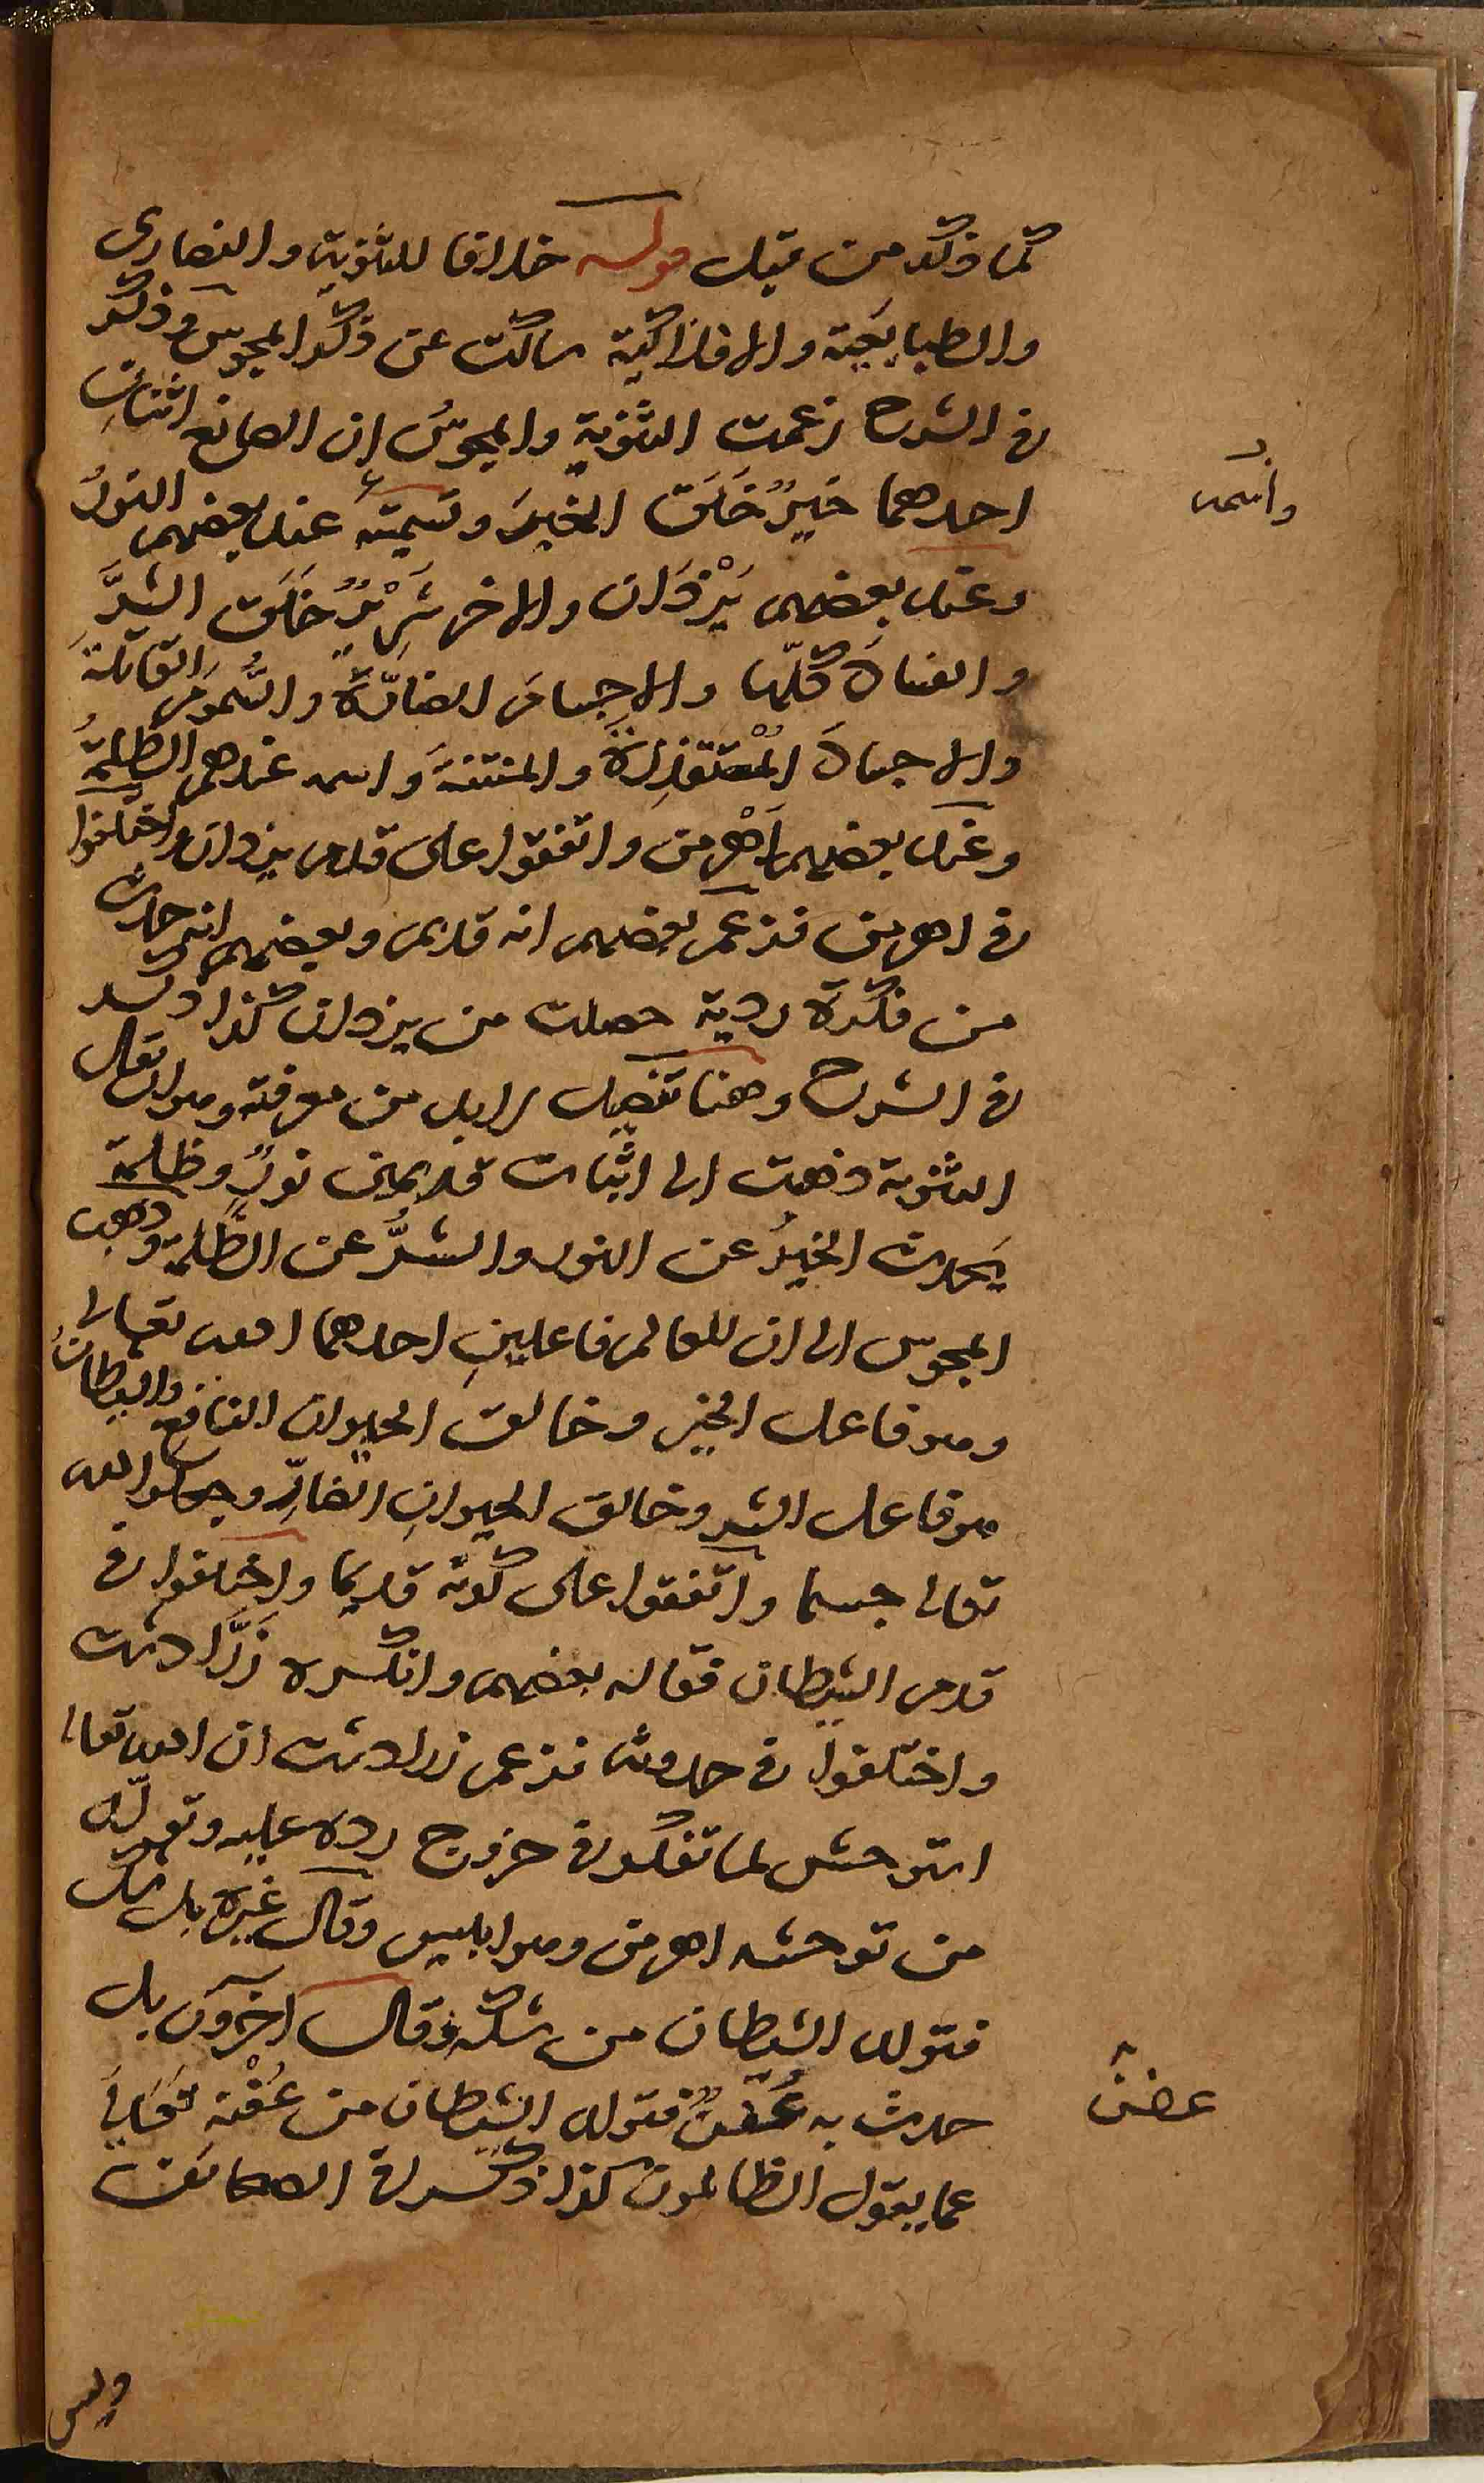 كما ذكر من قبل قوله خلافا للثنوية والنصارى
والطبايعية والافلاكية ساكت عن ذكر المجوس وذكر
في الشرح زعمت الثنوية والمجوسُ ان الصانع اثنان
احدهما خيرٌ خَلَقَ الخيرَ وتسميته عند بعضهم النورُ
واسمه
وعند بعضهم يَزْدَان والاخر شَرِيْرٌ خَلَقَ الشرَّ
والفساد كلها والاجسام الضارّة والسُّموم القاتلة
والاجساد المستقذرة والمنتنة واسمه عندهم الظلمة
وعند بعضهم اَهْرمن واتفقوا على قدم يزدان واختلفوا
في اهرمن فزعم بعضهم انه قديم وبعضهم انه حدث
من فكرة ردية حصلت من يزدان كذا ذكر
في الشرح وهنا تفصيل لا بد من معرفته وهو ان يقال
الثنوية ذهبت الى اثبات قديمين نورٌ وظلمة
يَحدث الخيرُ عن النور والشرُّ عن الظُلمة وذهب
المجوس الى ان للعالم فاعلينِ احدهما الله تعالى
وهو فاعل الخير وخالق الحيوان النافع والشيطانُ
هو فاعل الشر وخالق الحيوانِ الضارِّ وجعلوا الله
تعالى جسما واتفقوا على كونه قديما واختلفوا في
قدم الشيطان فقاله بعضهم وانكره زَرَّادشت
واختلفوا في حدوثه فزعم زرادشت ان الله تعالى
استوحش لما تفكر في خروج رده عليه وتولّد
من توحشه اهرمن وهو ابليس وقال غيره بل شك
فتولد الشيطان من شكه وقال آخرون بل
حدث به عُفنٌ فتولد الشيطان من عُفْنه تَعَالَى
عفن
عما يقول الظالمون كذا ذكر في الصحائف
وليس